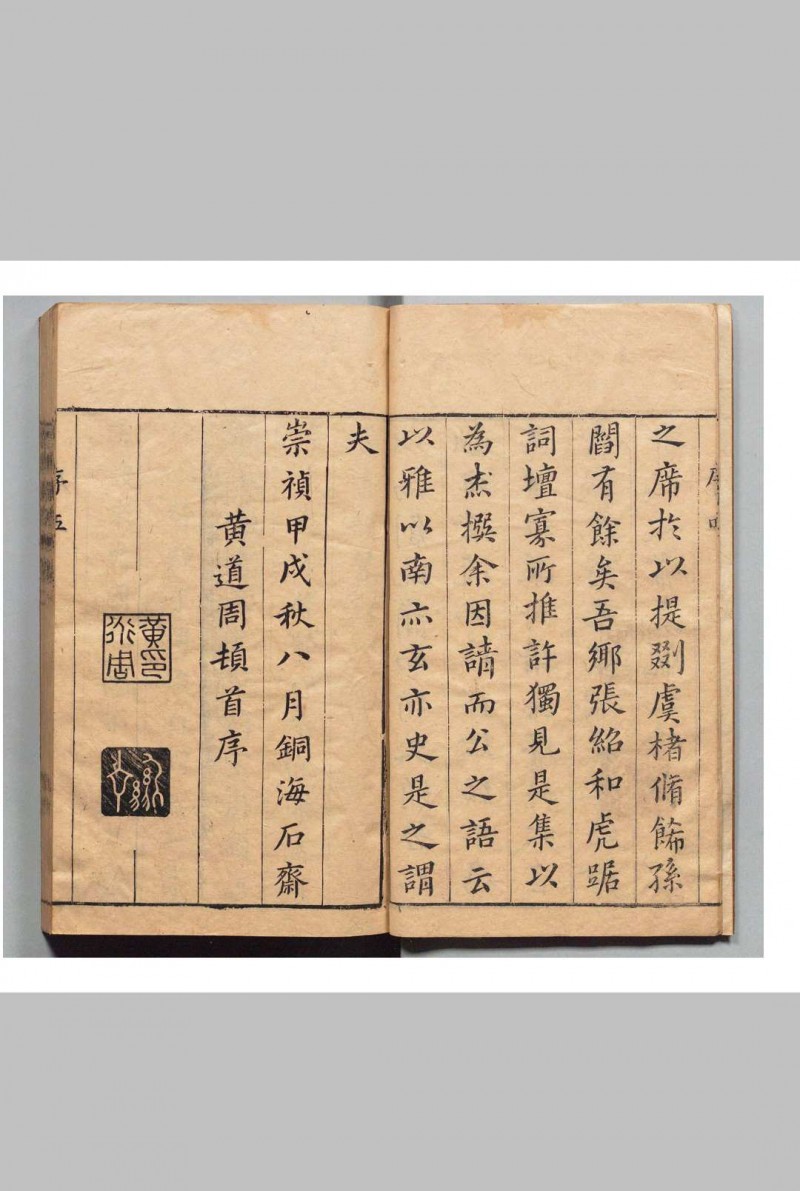 序
之席扵以提剟虞楮脩餙孫
閻有餘矣吾鄉張紹和虎踞
詞壇寡所推許獨見是集以
為杰撰余因請而公之語云
以雅以南亦玄亦史是之謂
夫
崇禎甲戌秋八月銅海石齋
黄道周頓首序
黃道周印
序五